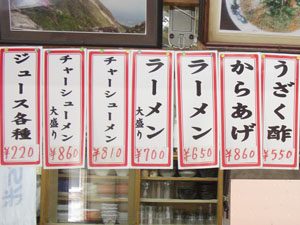 うざく酢
¥550
からあげ
¥860
ラーメン
¥650
ラーメン
大盛り
¥700
チャーシューメン
¥810
チャーシューメン
大盛り
¥860
ジュース各種
¥220